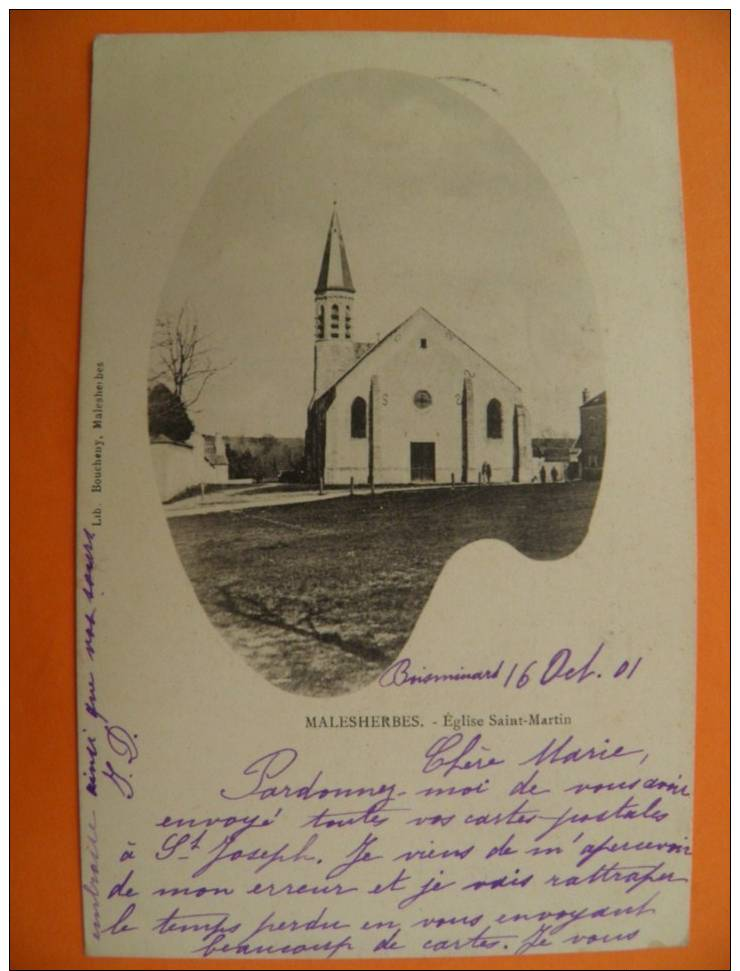 Lib. Boucheny, Malesherbes
Boisminard 16 Oct. 01
MALESHERBES. - Église Saint-Martin
Chère Marie,
Pardonnez-moi de vous avoir
envoyé toutes vos cartes-postales
à St. Joseph. Je viens de m'apercevoir
de mon erreur et je vais rattraper
le temps perdu en vous envoyant
beaucoup de cartes. Je vous
embrasse ainsi que vos sœurs
J. D.